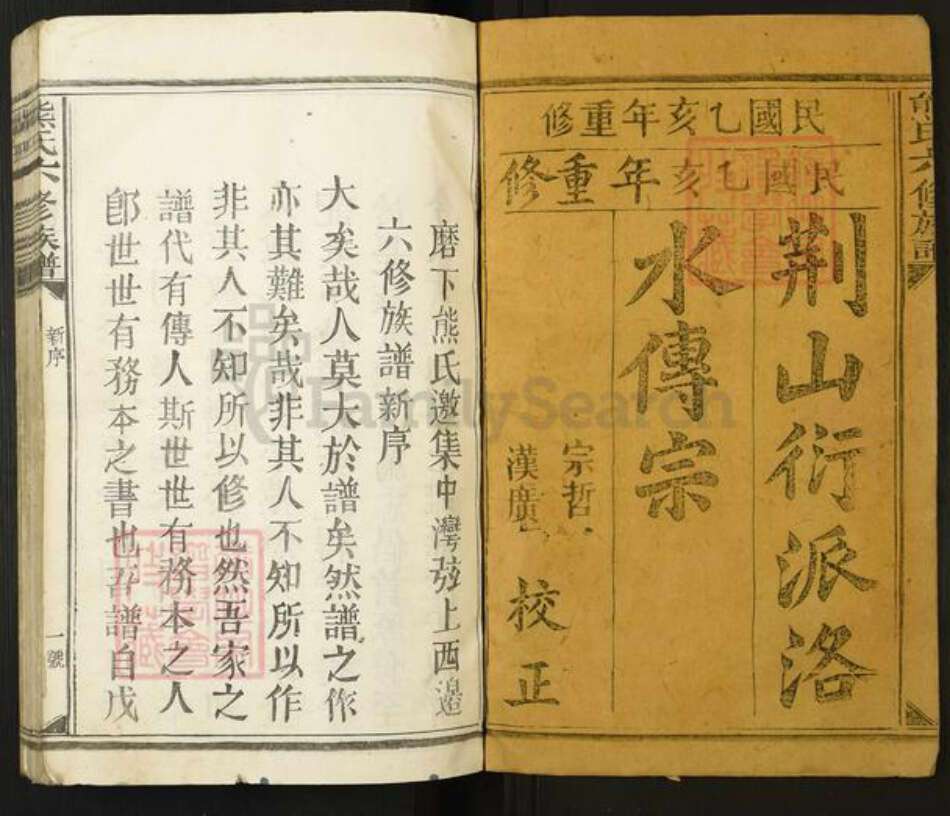 熊氏六修族譜
民國乙亥年重修
民國乙亥年重修
荆山衍派洛
水傳宗
宗哲
漢廣
校正
磨下熊氏邀集中灣弦上西邉
六修族譜新序
大矣哉人莫大於譜矣然譜之作
亦其難矣哉非其人不知所以作
非其人不知所以修也然吾家之
譜代有傳人斯世世有務本之人
卽世世有務本之書也吾譜自戊
熊氏六修族譜
新序
一號
FamilySearch